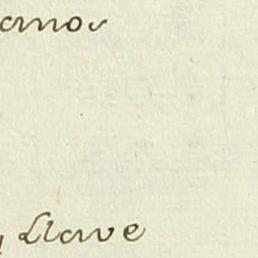 amos
Llave